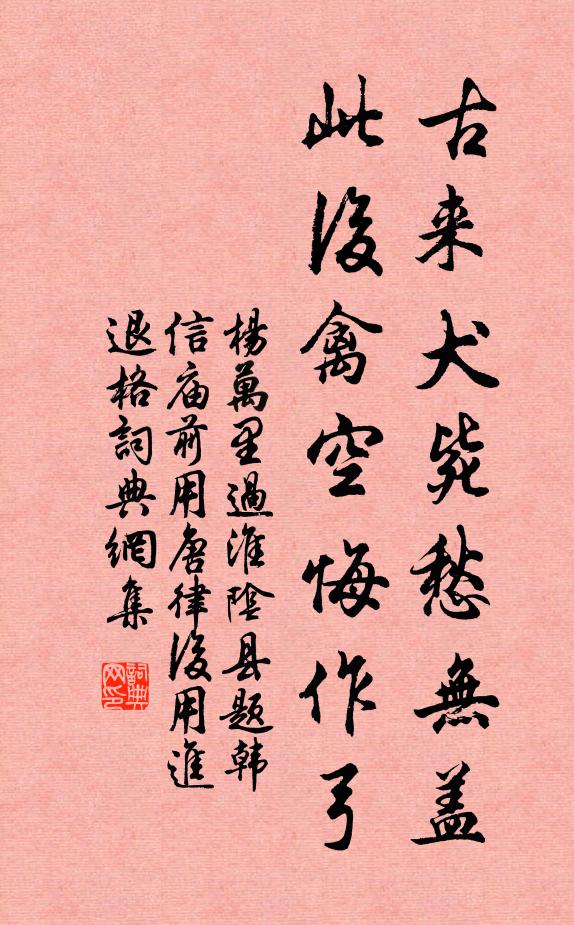 古来犬毙愁無盖
此後禽空悔作弓
楊萬里過淮陰县题韩
信庙前用唐律後用進
退格詞典網集
詞典网印